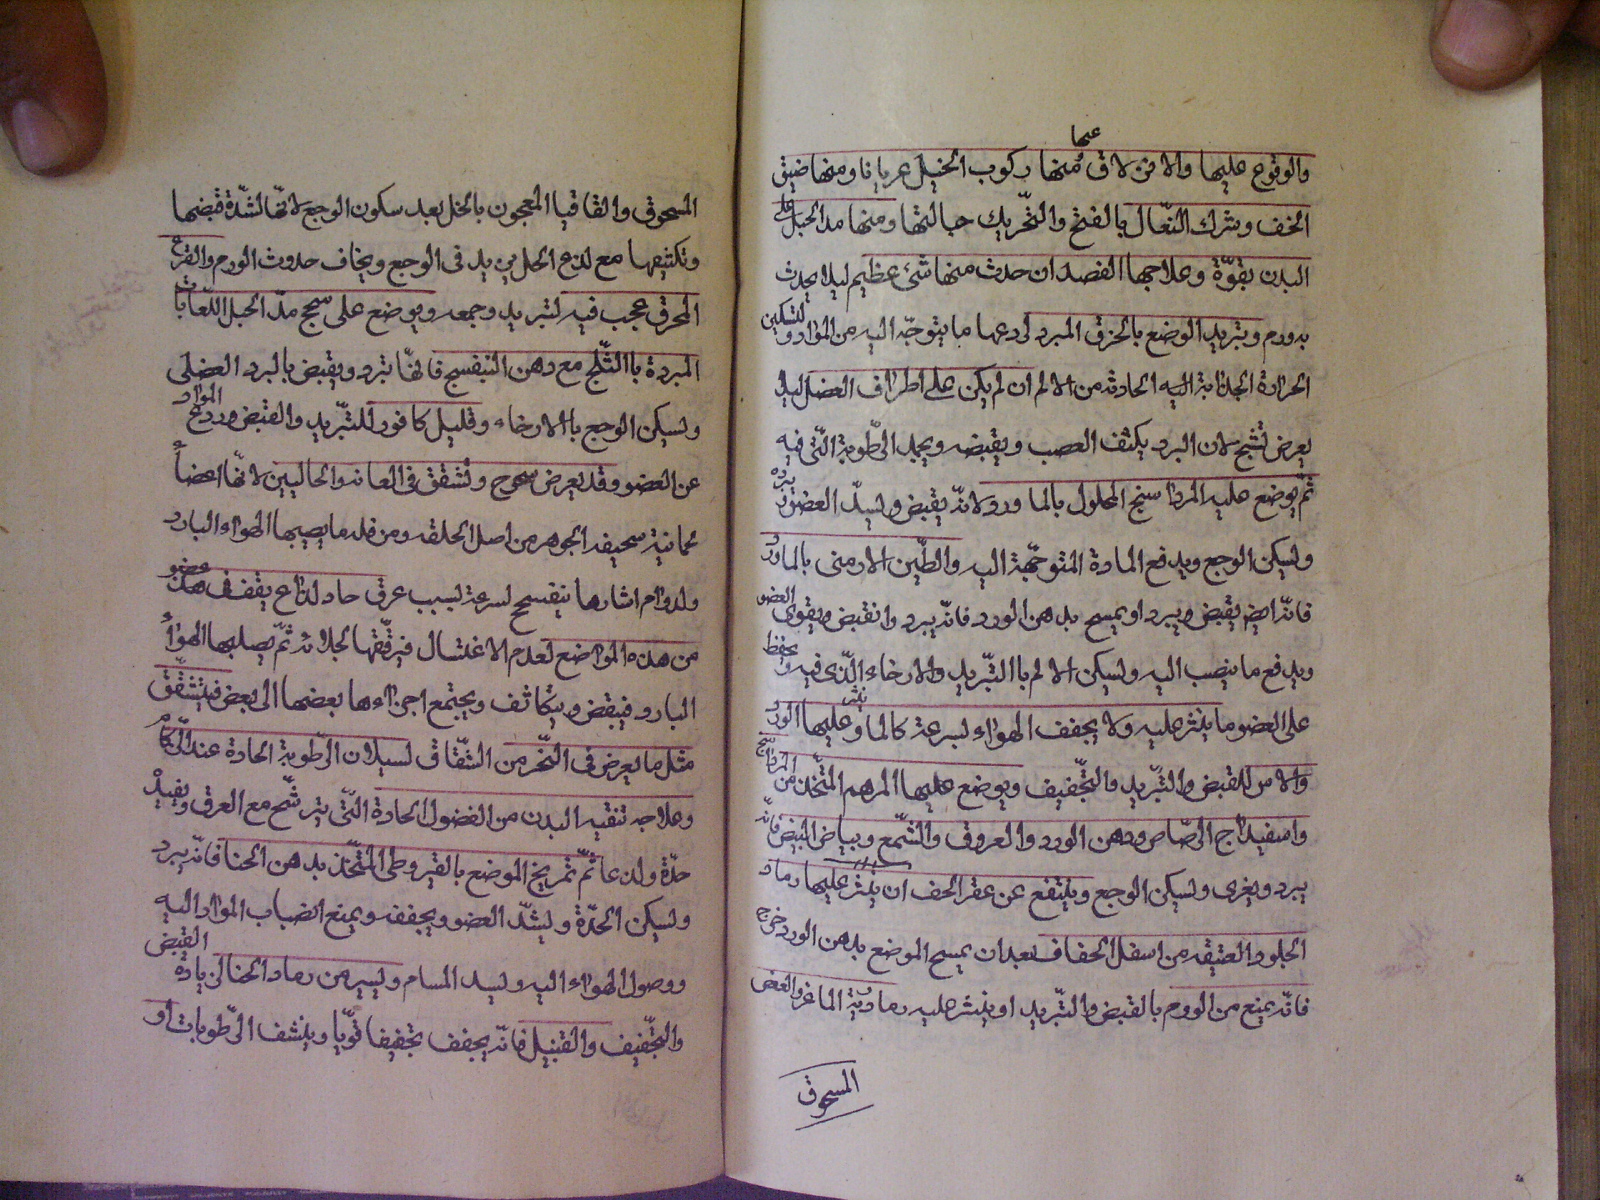 عنها
والوقوع عليها والانزلاق منها ركوب الخيل عريانا ومنها ضيق
الخف وشرك النّعال بالفتح والتّحريك حبالتها ومنها مد الحبل على
البدن بقوّة وعلاجها الفصد ان حدث منها شئ عظيم ليلا يحدث
به ورم وتبريد الوضع بالخرق المبرد لردعها ما يتوجّه اليه من المواد ولتسكين
الحرارة الجذابة اليه الحادثه من الالم ان لم يكن على اطراف العضل ليلا
يعرض تشنج لان البرد يكثف العصب ويقبضه ويجمد الرّطوبة الّتى فيه
ثمّ يوضع عليه المرداسنج المحلول بالماورد لانّه يقبض ويسدّ العضو ويبرده
ويسكن الوجع ويدفع المادة المتوجّهة اليه والطّين الارمنى بالماورد
فانّه ايضم يقبض ويبرد او يمسح بدهن الورد فانّه يبرد وانقبض ويقوى العضو
ويدفع ما ينصب اليه ويسكن الالم باالتّبريد والارخاء الّذى فيه ويحفظ
على العضو ما ينثر عليه ولا يجفف الهواء لسرعة كالما وينثر عليها الورد
والاس للقبض والتّبريد والتّجفيف ويوضع عليها المرهم المتّخذ من المرداسنج
واسفيداج الرّصاص ودهن الورد والعروق والشّمع وبياض البيض فانّه
يبرد ويغرى ويسكن الوجع وينتفع عن عقر الخف ان ينثر عليها رماد
الجلود العتيقه من اسفل الخفاف بعد ان يمسح الموضع بدهن الورد
فانّه يمنع من الورم بالقبض والتّبريد او ينثر عليه رماد والعفص
المسحوق
المسحوق والقاقيا المعجون بالخل بعد سكون الوجع لانّها لشدّة قبضها
وتكثيفها مع لذع الخل يزيد فى الوجع ويخاف حدوث الورم والقرع
المحرق عجيب فيه لتبريده وجمعه ويوضع على سحج مدّ الحبل اللّعابات
المبردة باالثّلج مع دهن البنفسج فانها تبرد ويقبض بالبرد العضلى
ويسكن الوجع بالارخاء وقليل كافور للتّبريد والقبض وردع المواد
عن العضو وقد يعرض سحوج وتشقق فى العانه والحالبين لانّها اعضاً
سخيفه الجوهر من اصل الخلقه ومن قله ما يصيبها الهواء البارد
ولدوام يتفسح لسرعة لسبب عرق حاد لذاع يقف فى عضو
من هذه المواضع لعدم الاغتسال فيرقّقها الجلد ثمّ يصلبها الهواءُ
البارد فيقبض ويتكاثف ويجتمع اجزاءها بعضها الى بعض فيتشقّق
مثل ما يعرض فى النّخر من الشّقاق لسيلان الرّطوبة الحادة عند الزّكام
وعلاجه تنقيه البدن من الفضول الحادة الّتى يترشّح مع العرق ويفيد
حدّة ولذعا ثمّ تمريخ الموضع بالقيروطى المتّخذ بدهن الحنا فانّه يبرد
ويسكن الحدّة ويشدّ العضو ويجفف ويمنع انصباب المواد اليه
ووصول الهواء اليه ويسد المسام ويسير من رماد الحنا لزيادة القبض
والتّجفيف والقنبيل فانّه يجفف تجفيفا قويّا وينشف الرّطوبات او